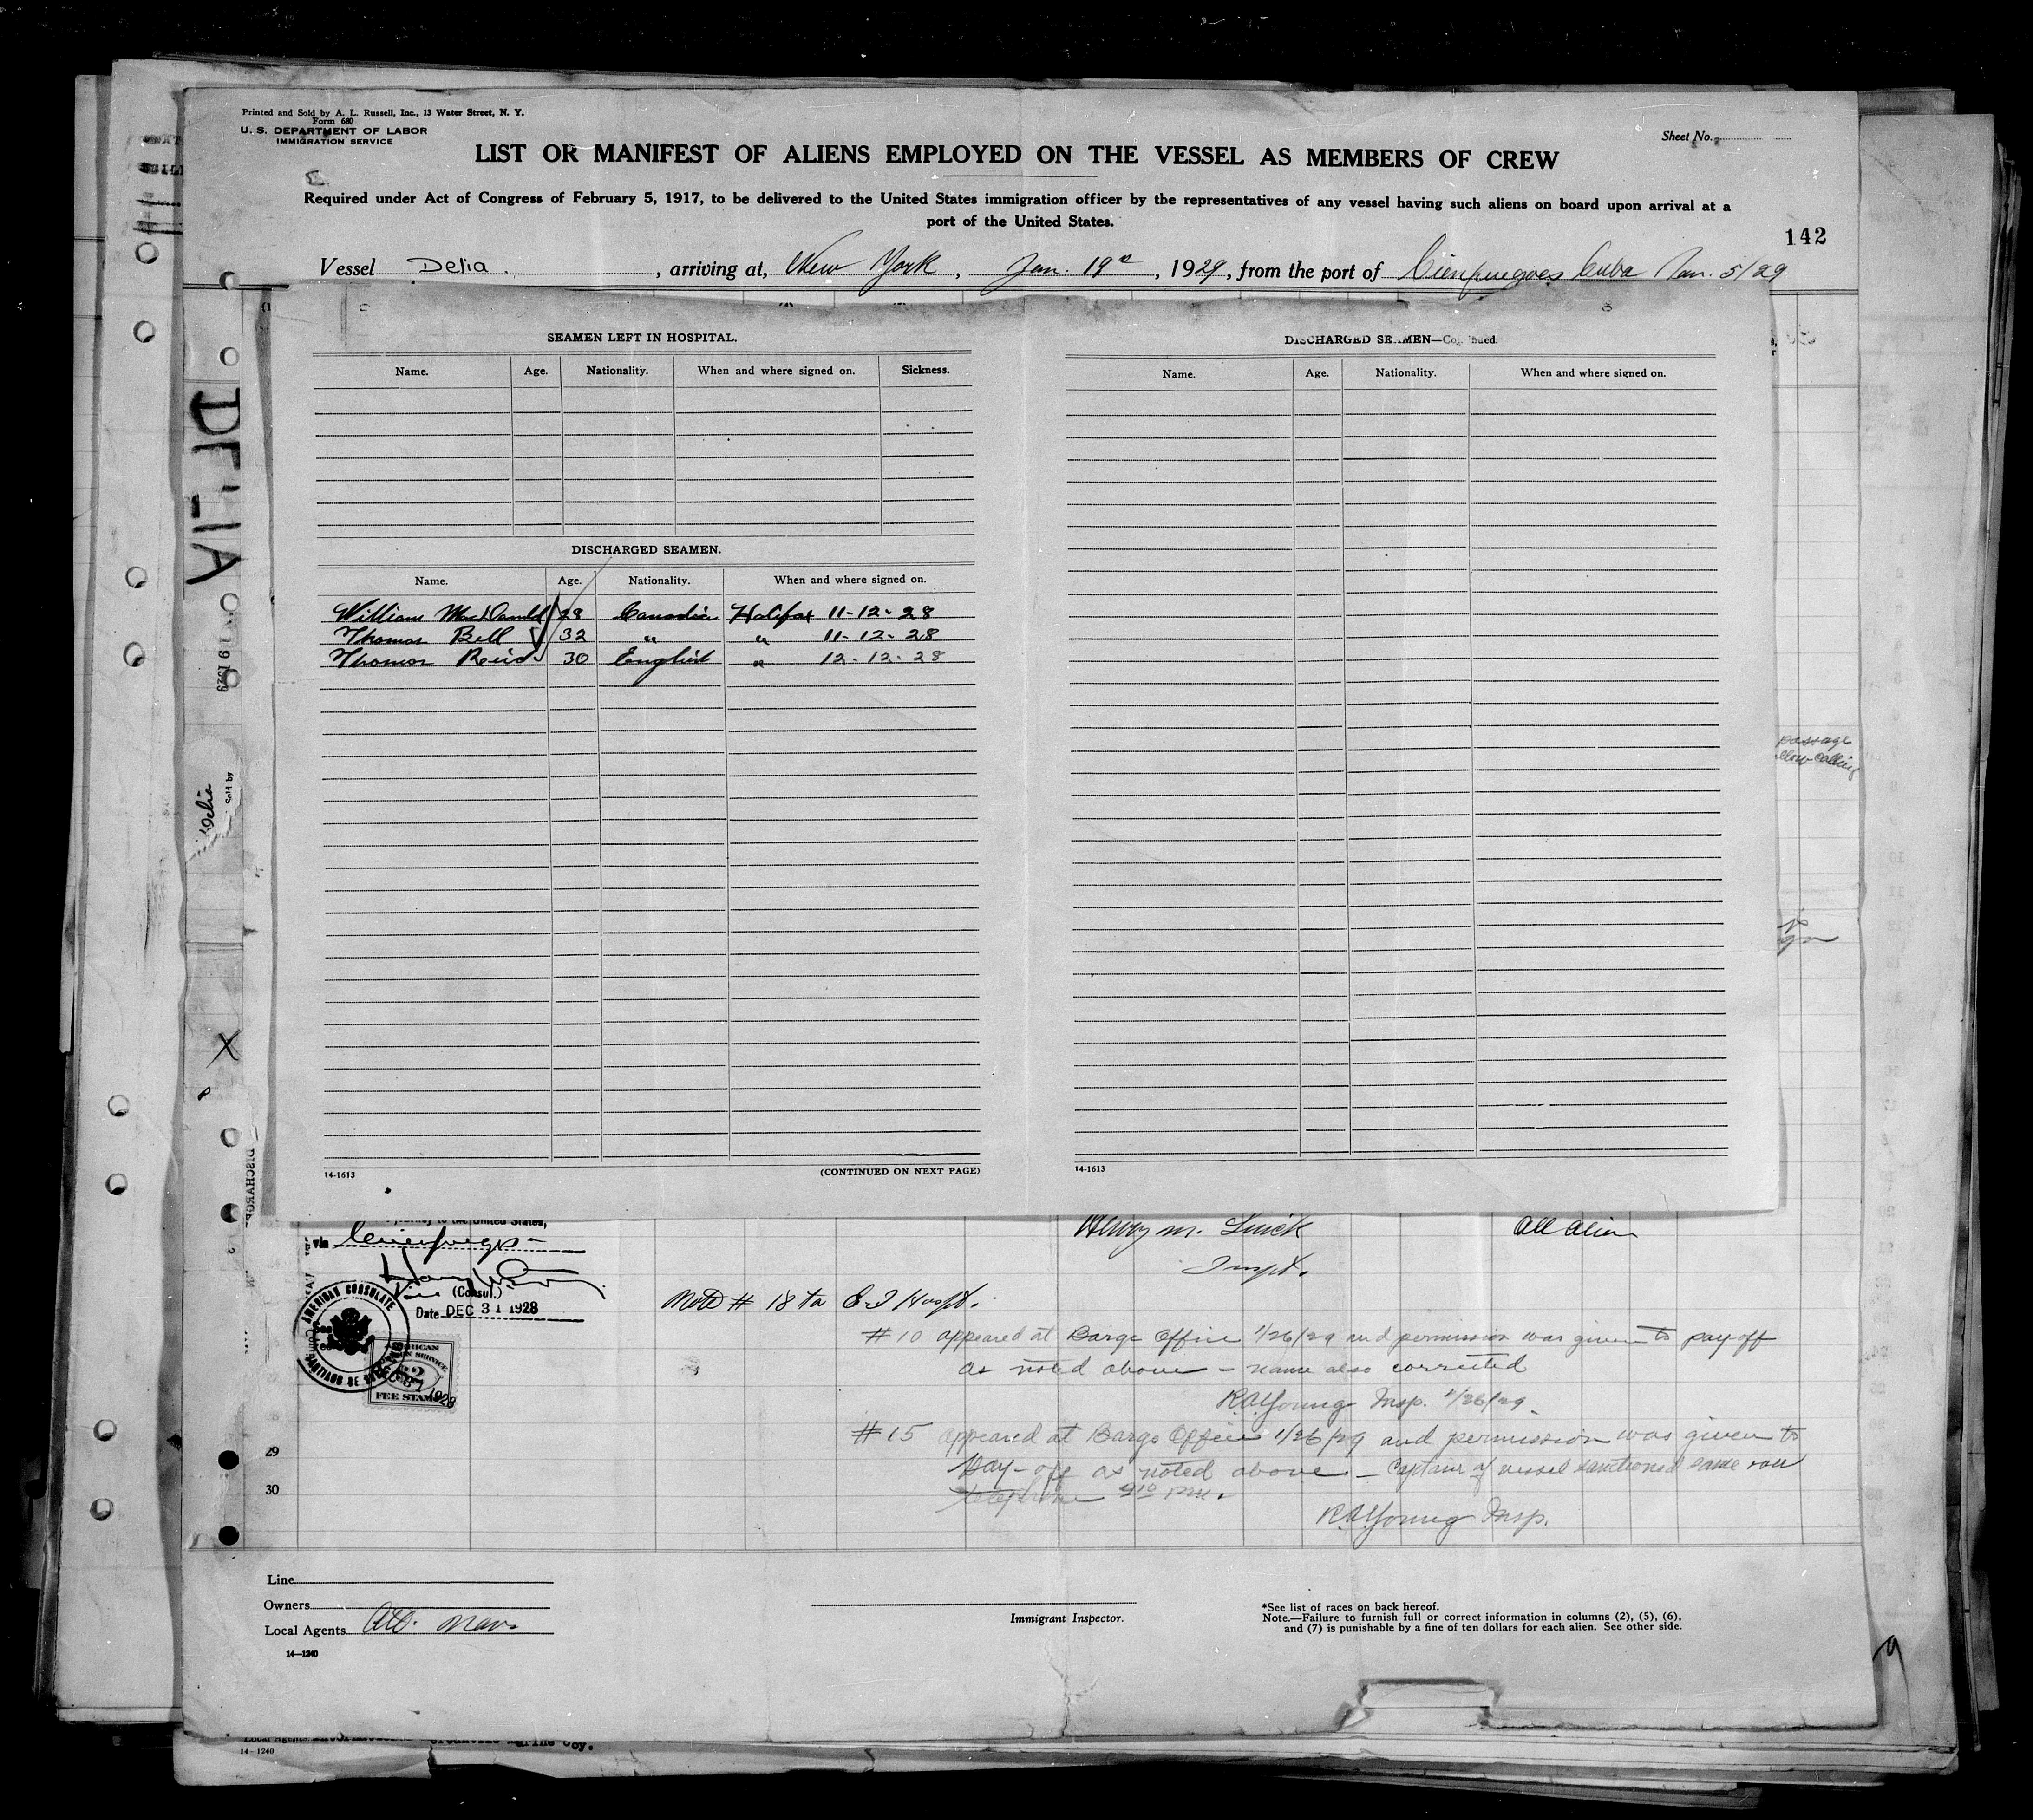 Printed and Sold by A. L. Russell, Inc., 13 Water Street, N. Y.
Form 680
U. S. DEPARTMENT OF LABOR
IMMIGRATION SERVICE
Sheet No.
LIST OR MANIFEST OF ALIENS EMPLOYED ON THE VESSEL AS MEMBERS OF CREW
Required under Act of Congress of February 5, 1917, to be delivered to the United States immigration officer by the representatives of any vessel having such aliens on board upon arrival at a
port of the United States.
142
Vessel Delia., arriving at, New York, Jan. 19th, 1929, from the port of Cienfuegos Cuba Jan. 5/29
SEAMEN LEFT IN HOSPITAL.
Name. Age. Nationality. When and where signed on. Sickness.
DISCHARGED SEAMEN.
Name. Age. Nationality. When and where signed on.
William MacDonald 28 Canadian Halifax 11-12-28
Thomas Bell 32 " " 11-12-28
Thomas Reid 30 English " 12-12-28
14-1613
(CONTINUED ON NEXT PAGE)
DISCHARGED SEAMEN—Continued.
Name. Age. Nationality. When and where signed on.
14-1613
DELIA
Delia
Sold by
X
passage
via Cienfuegos
(Consul.)
Date DEC 31 1928
AMERICAN CONSULATE
FEE STAMP
Henry M.
All Alien
Inspt.
Note # 18 to Hospt.
#10 appeared at Barge Office 1/26/29 and permission was given to pay off
as noted above - name also corrected
R.A. Young Insp. 1/26/29.
#15 appeared at Barge Office 1/26/29 and permission was given to
Pay-off as noted above - Captain of vessel sanctioned same
telephone
R A Young Insp.
29
30
Line
Owners
Local Agents
14—1240
Immigrant Inspector.
*See list of races on back hereof.
Note.—Failure to furnish full or correct information in columns (2), (5), (6),
and (7) is punishable by a fine of ten dollars for each alien. See other side.
14-1240